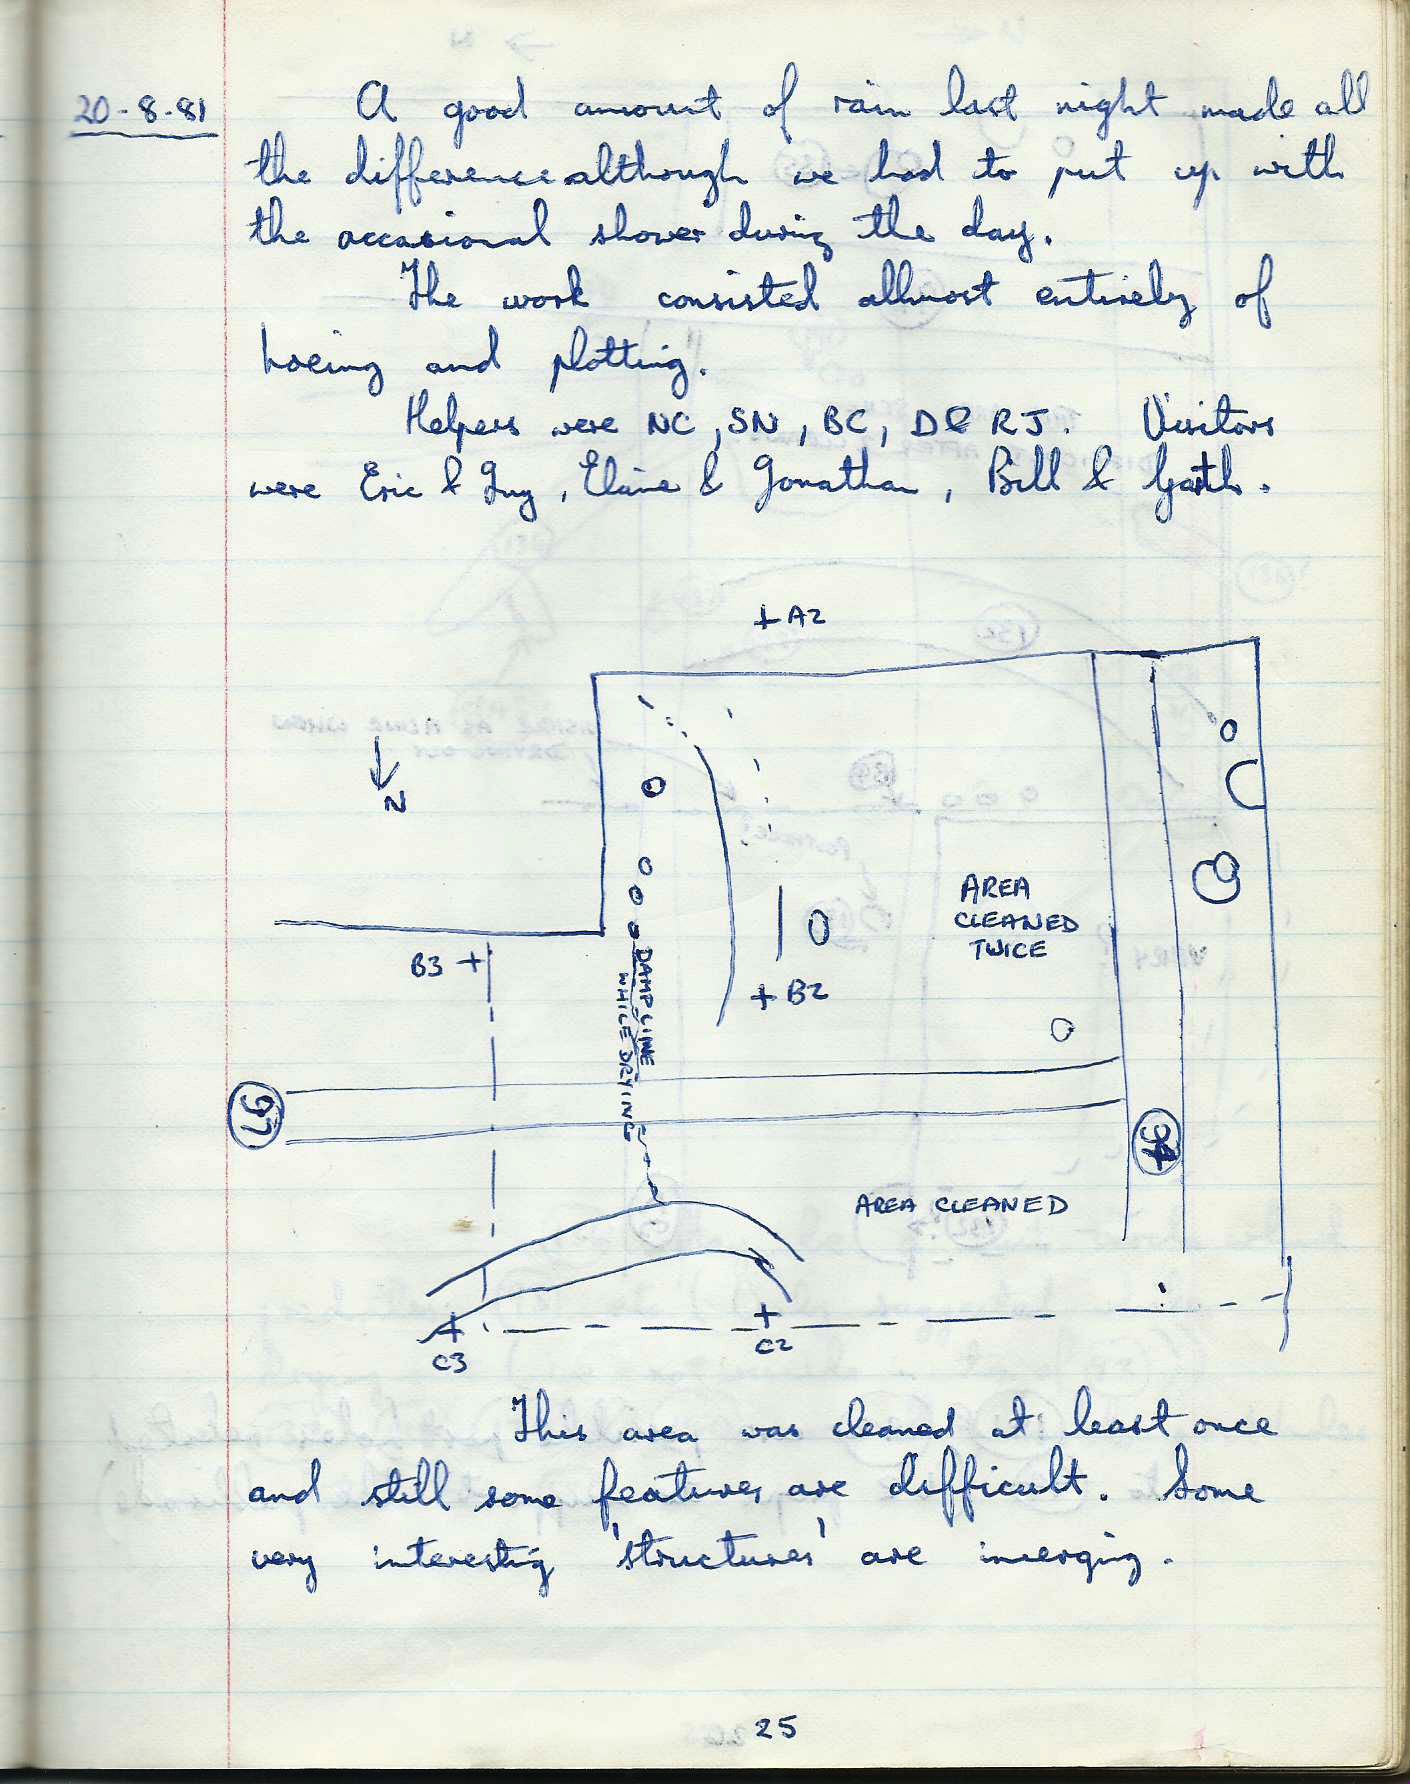 20-8-81
A good amount of rain last night made all
the difference although we had to put up with
the occasional shower during the day.
The work consisted allmost entirely of
hoeing and plotting.
Helpers were NC, SN, BC, D & RJ. Visitors
were Eric & Guy, Elaine & Jonathan, Bill & Garth.
A2
N
AREA
CLEANED
TWICE
B3
B2
DAMP LINE
WHILE DRYING
97
94
AREA CLEANED
C3
C2
This area was cleaned at least once
and still some features are difficult. Some
very interesting 'structures' are imerging.
25